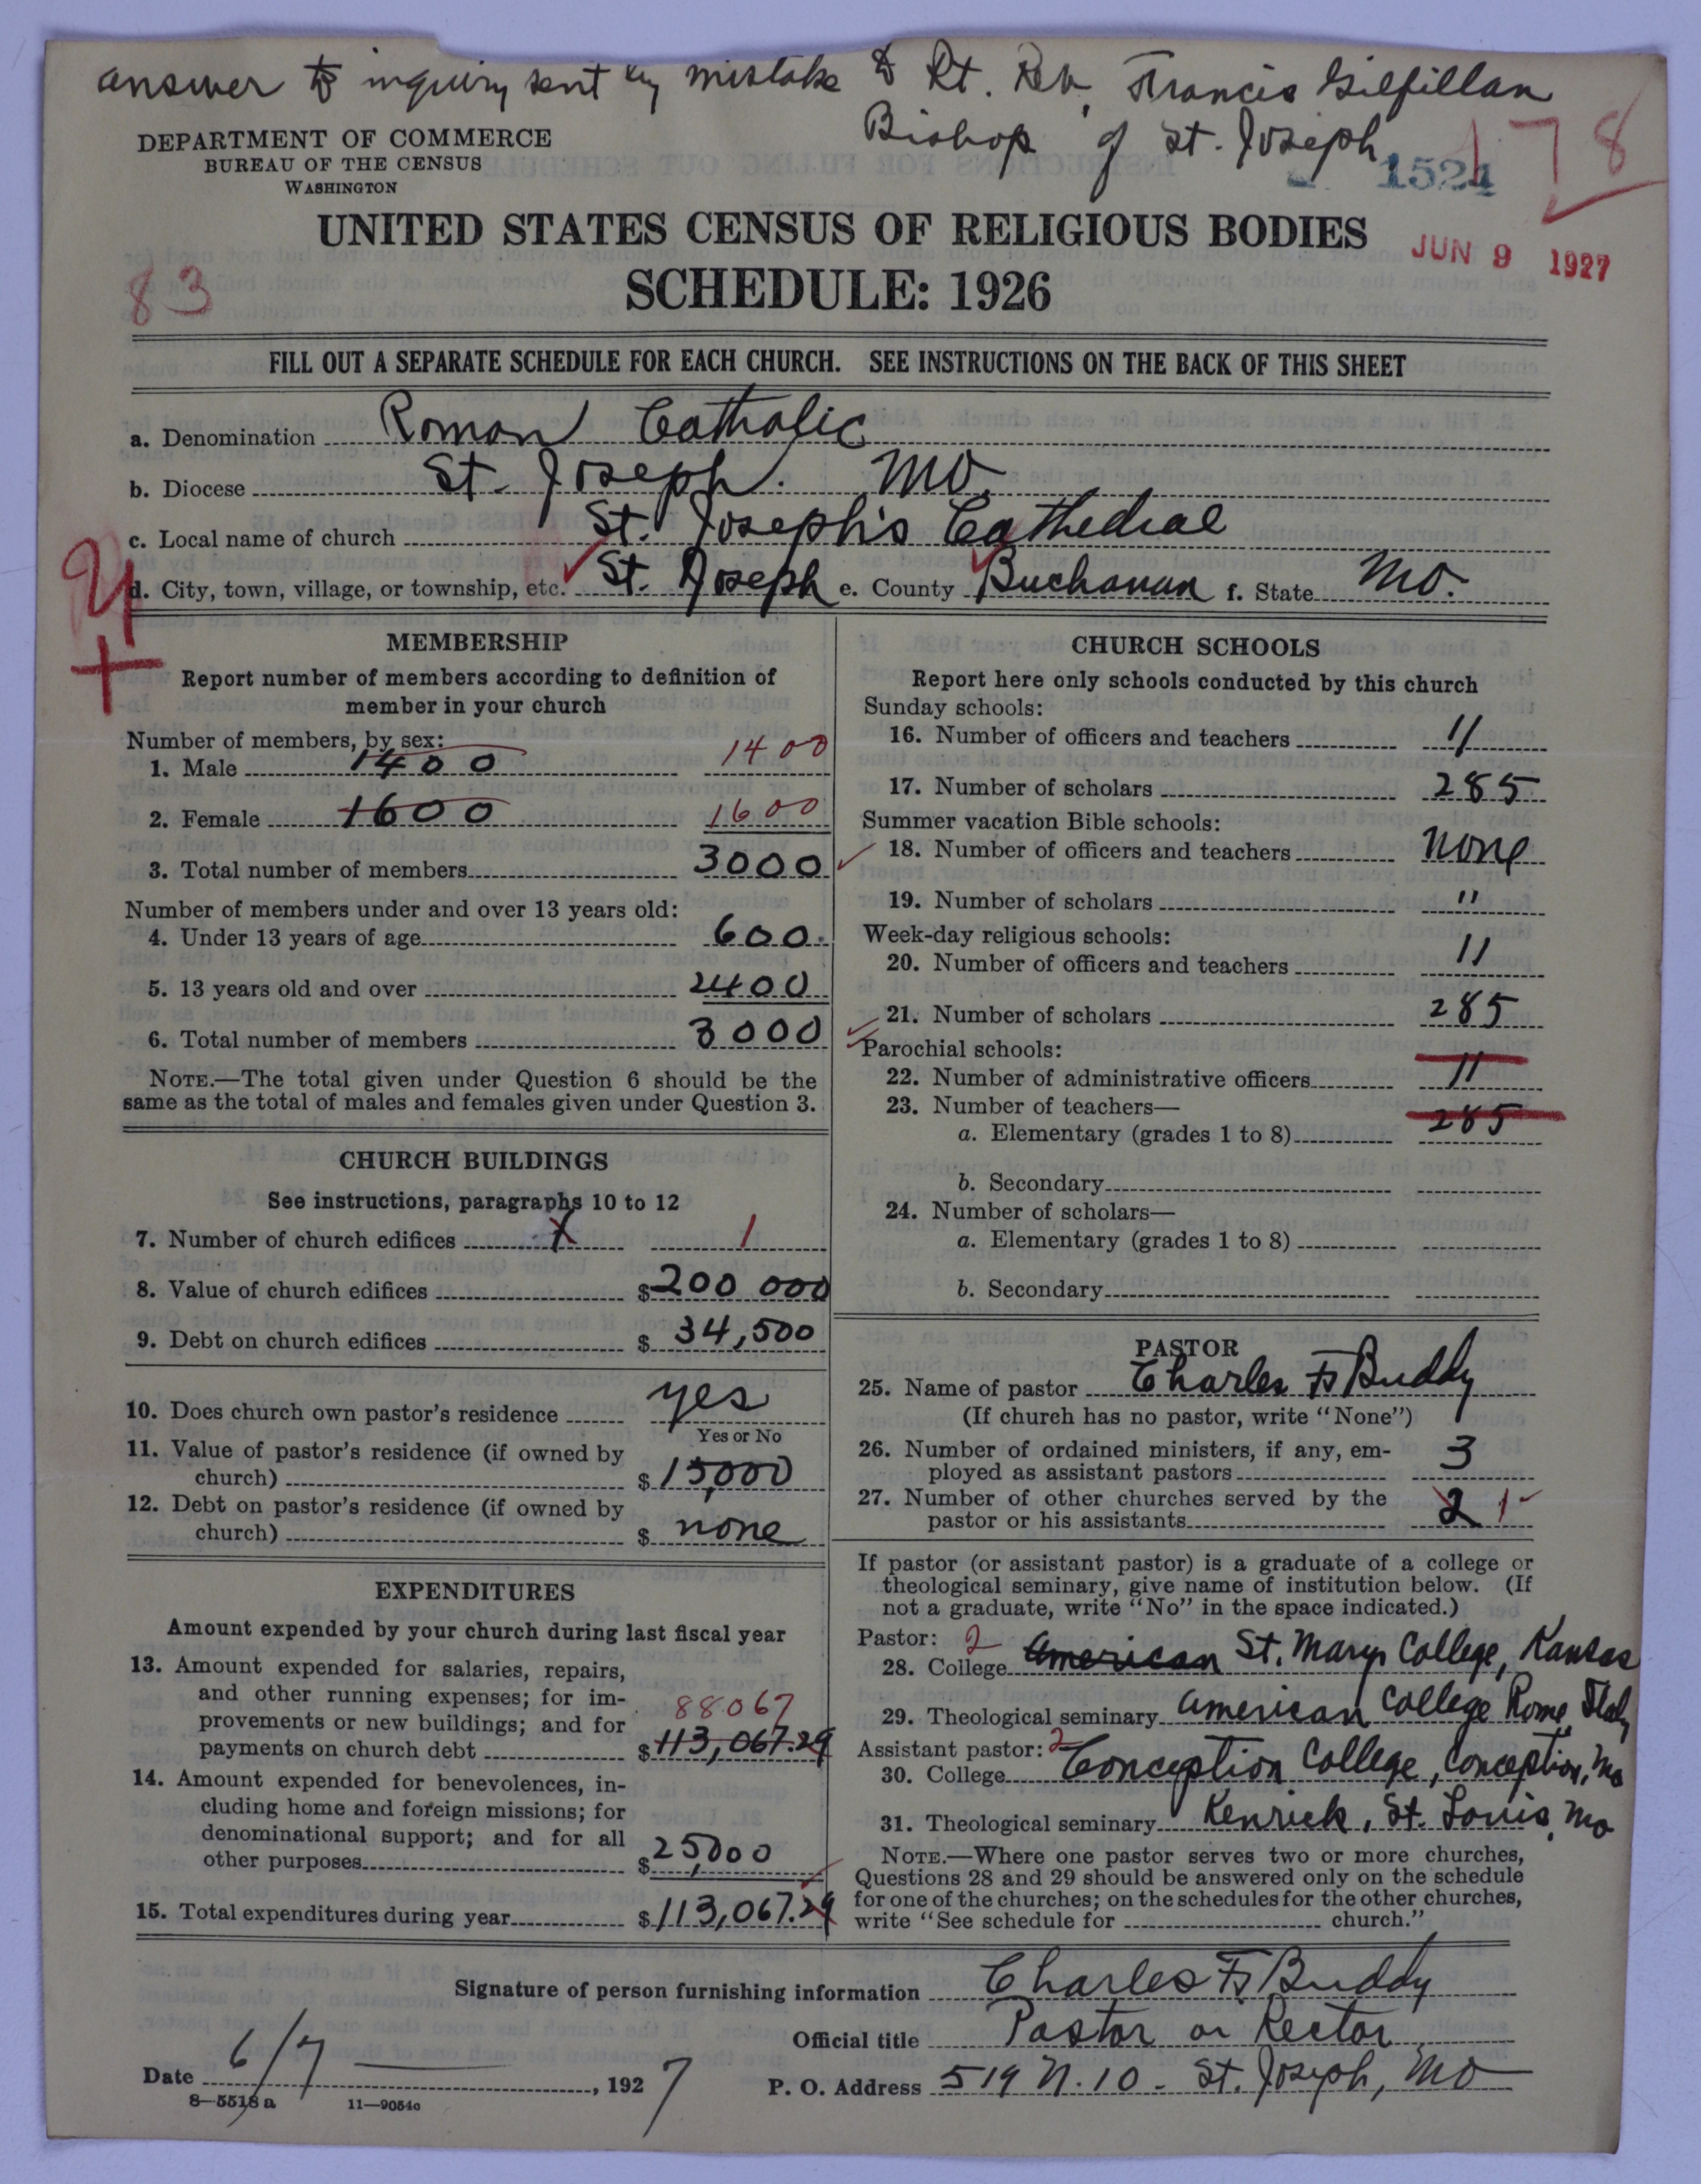 answer to inquiry sent by mistake to Rt. Rev. Francis Gilfillan
Bishop of St. Joseph
178
DEPARTMENT OF COMMERCE
BUREAU OF THE CENSUS
WASHINGTON
1524
UNITED STATES CENSUS OF RELIGIOUS BODIES
JUN 9 1927
SCHEDULE: 1926
83
FILL OUT A SEPARATE SCHEDULE FOR EACH CHURCH. SEE INSTRUCTIONS ON THE BACK OF THIS SHEET
a. Denomination Roman Catholic
b. Diocese St. Joseph. Mo.
c. Local name of church St. Joseph's Cathedral
d. City, town, village, or township, etc. St. Joseph e. County Buchanan f. State Mo.
MEMBERSHIP
Report number of members according to definition of
member in your church
Number of members, by sex:
1. Male 1400 1400
2. Female 1600 1600
3. Total number of members 3000
Number of members under and over 13 years old:
4. Under 13 years of age 600
5. 13 years old and over 2400
6. Total number of members 3000
NOTE.—The total given under Question 6 should be the
same as the total of males and females given under Question 3.
CHURCH BUILDINGS
See instructions, paragraphs 10 to 12
7. Number of church edifices 1 1
8. Value of church edifices $200 000
9. Debt on church edifices $ 34,500
10. Does church own pastor's residence yes
Yes or No
11. Value of pastor's residence (if owned by
church) $15,000
12. Debt on pastor's residence (if owned by
church) $ none
EXPENDITURES
Amount expended by your church during last fiscal year
13. Amount expended for salaries, repairs,
and other running expenses; for im-
provements or new buildings; and for 88067
payments on church debt $113,067.29
14. Amount expended for benevolences, in-
cluding home and foreign missions; for
denominational support; and for all
other purposes $25,000
15. Total expenditures during year $113,067.29
CHURCH SCHOOLS
Report here only schools conducted by this church
Sunday schools:
16. Number of officers and teachers 11
17. Number of scholars 285
Summer vacation Bible schools:
18. Number of officers and teachers none
19. Number of scholars "
Week-day religious schools:
20. Number of officers and teachers 11
21. Number of scholars 285
Parochial schools:
22. Number of administrative officers 11
23. Number of teachers—
a. Elementary (grades 1 to 8) 285
b. Secondary
24. Number of scholars—
a. Elementary (grades 1 to 8)
b. Secondary
PASTOR
25. Name of pastor Charles F. Buddy
(If church has no pastor, write "None")
26. Number of ordained ministers, if any, em-
ployed as assistant pastors 3
27. Number of other churches served by the
pastor or his assistants 2 1
If pastor (or assistant pastor) is a graduate of a college or
theological seminary, give name of institution below. (If
not a graduate, write "No" in the space indicated.)
Pastor: 2
28. College American St. Marys College, Kansas
29. Theological seminary American College Rome Italy
Assistant pastor: 2
30. College Conception College, Conception, Mo
31. Theological seminary Kenrick, St. Louis, Mo
NOTE.—Where one pastor serves two or more churches,
Questions 28 and 29 should be answered only on the schedule
for one of the churches; on the schedules for the other churches,
write "See schedule for church."
Signature of person furnishing information Charles F. Buddy
Official title Pastor or Rector
Date 6/7, 1927
P. O. Address 519 N. 10 - St. Joseph, Mo
8—5518 a 11—9054c